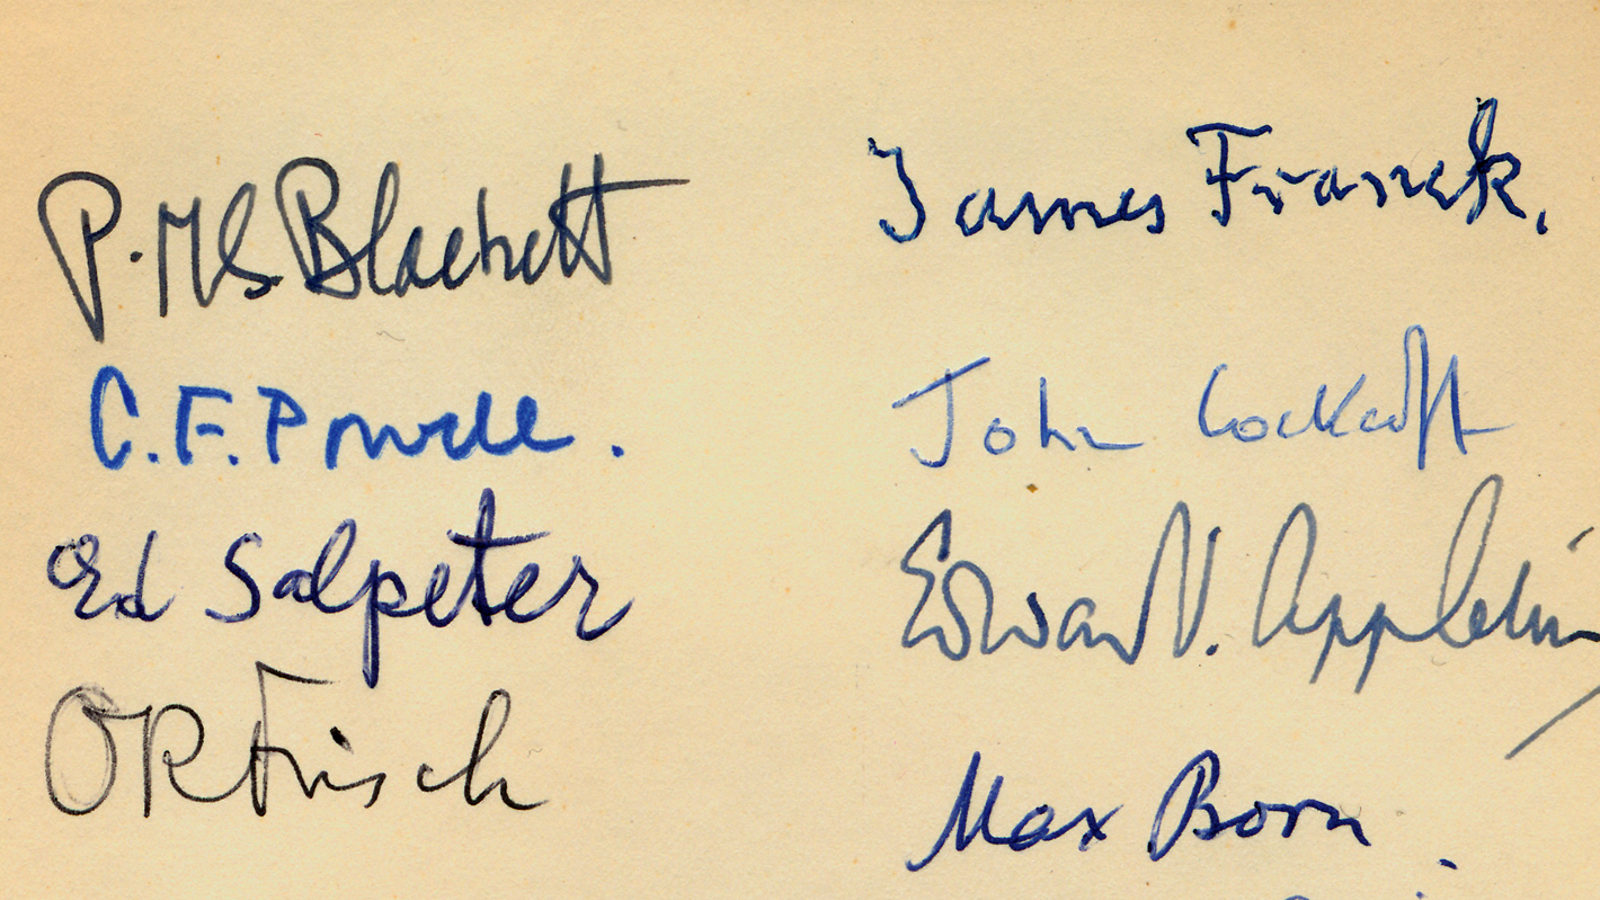 P.M.S. Blackett
C.F. Powell.
Ed Salpeter
OR Frisch
James Franck.
John Cockcroft
Edward V. Appleton
Max Born.